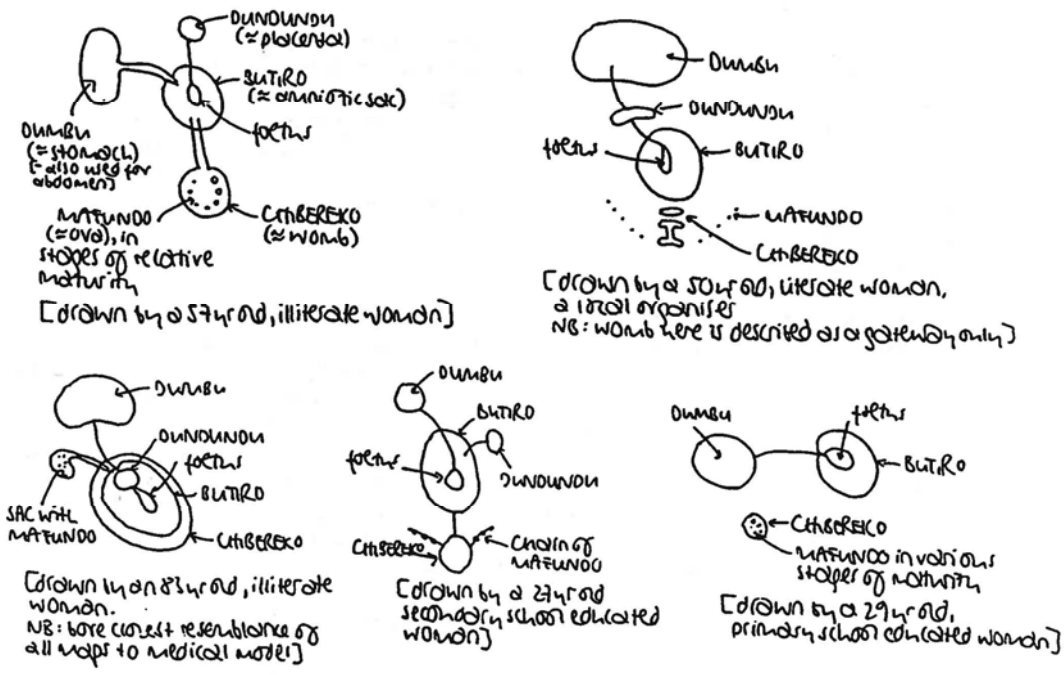 DUNDUNDU
(≈placenta)
BUTIRO
(≈amniotic sac)
foetus
DUMBU
(≈stomach)
[-also used for
abdomen]
MAFUNDO
(≈ova), in
stages of relative
maturity
CHIBEREKO
(≈womb)
[drawn by a 57yr old, illiterate woman]
DUMBU
DUNDUNDU
foetus
BUTIRO
MAFUNDO
CHIBEREKO
[drawn by a 50yr old, literate woman,
a local organiser
NB: womb here is described as a gateway only]
DUMBU
DUNDUNDU
foetus
BUTIRO
SAC with
MAFUNDO
CHIBEREKO
[drawn by an 83yr old, illiterate
woman.
NB: bore closest resemblance of
all maps to medical model]
DUMBU
BUTIRO
foetus
DUNDUNDU
CHIBEREKO
Chain of
MAFUNDO
[drawn by a 27yr old
secondary school educated
woman]
DUMBU
foetus
BUTIRO
CHIBEREKO
MAFUNDO in various
stages of maturity
[drawn by a 29yr old,
primary school educated woman]